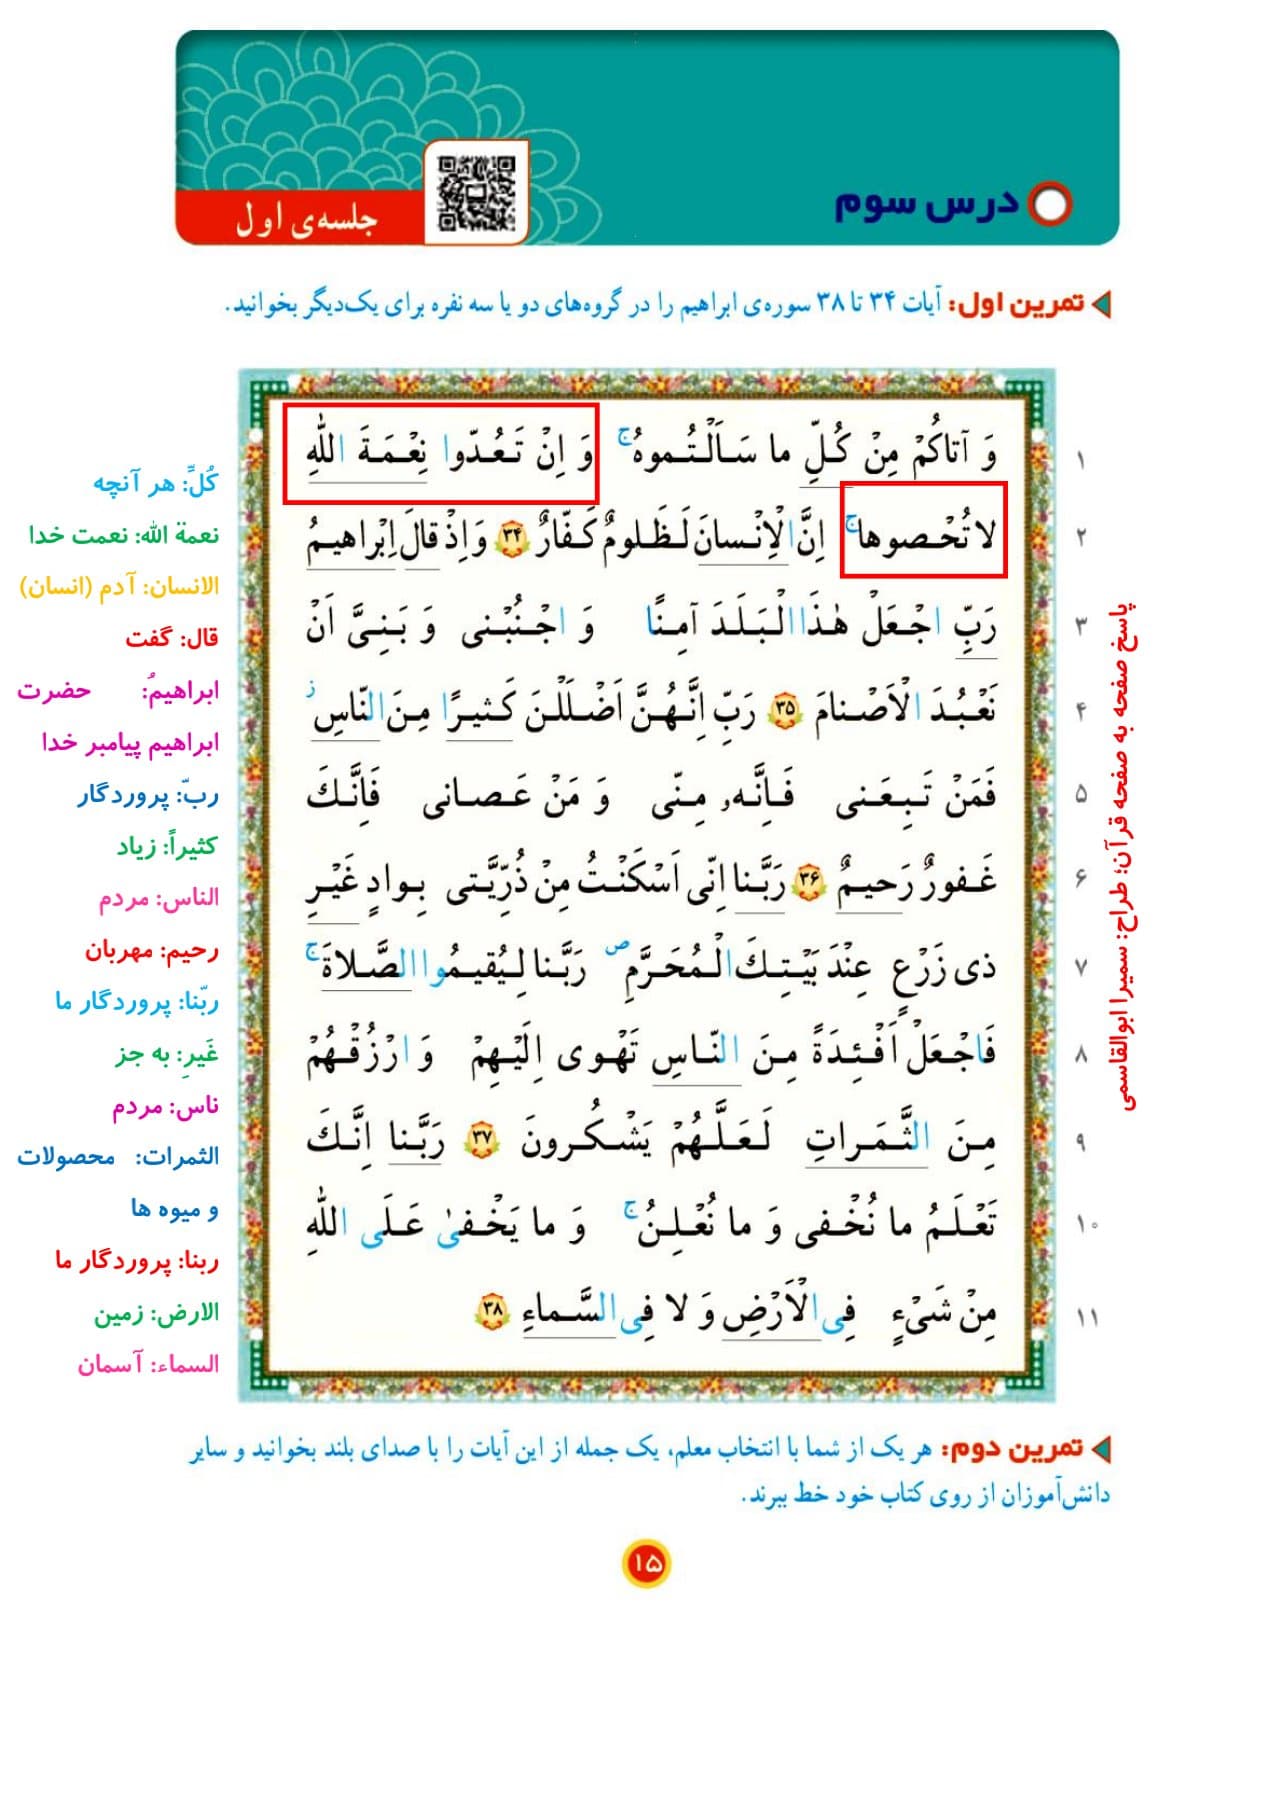 درس سوم
جلسه‌ی اول
تمرین اول: آیات ۳۴ تا ۳۸ سوره‌ی ابراهیم را در گروه‌های دو یا سه نفره برای یک‌دیگر بخوانید.
۱ وَ آتاکُمْ مِنْ کُلِّ ما سَاَلْتُموهُ ۚ وَ اِنْ تَعُدّوا نِعْمَةَ اللّٰهِ
۲ لا تُحْصوها ۚ اِنَّ الْاِنْسانَ لَظَلومٌ کَفّارٌ ۳۴ وَ اِذْ قالَ اِبْراهیمُ
۳ رَبِّ اجْعَلْ هٰذَا الْبَلَدَ آمِنًا وَ اجْنُبْنی وَ بَنِیَّ اَنْ
۴ نَعْبُدَ الْاَصْنامَ ۳۵ رَبِّ اِنَّهُنَّ اَضْلَلْنَ کَثیرًا مِنَ النّاسِ ز
۵ فَمَنْ تَبِعَنی فَاِنَّه و مِنّی وَ مَنْ عَصانی فَاِنَّكَ
۶ غَفورٌ رَحیمٌ ۳۶ رَبَّنا اِنّی اَسْکَنْتُ مِنْ ذُرِّیَّتی بِوادٍ غَیْرِ
۷ ذی زَرْعٍ عِنْدَ بَیْتِكَ الْمُحَرَّمِ ص رَبَّنا لِیُقیمُوا الصَّلاةَ ۚ
۸ فَاجْعَلْ اَفْئِدَةً مِنَ النّاسِ تَهْوی اِلَیْهِمْ وَ ارْزُقْهُمْ
۹ مِنَ الثَّمَراتِ لَعَلَّهُمْ یَشْکُرونَ ۳۷ رَبَّنا اِنَّكَ
۱۰ تَعْلَمُ ما نُخْفی وَ ما نُعْلِنُ ۚ وَ ما یَخْفیٰ عَلَی اللّٰهِ
۱۱ مِنْ شَیْءٍ فِی الْاَرْضِ وَ لا فِی السَّماءِ ۳۸
کُلِّ: هر آنچه
نعمة الله: نعمت خدا
الانسان: آدم (انسان)
قال: گفت
ابراهیمُ: حضرت
ابراهیم پیامبر خدا
ربّ: پروردگار
کثیراً: زیاد
الناس: مردم
رحیم: مهربان
ربّنا: پروردگار ما
غَیرِ: به جز
ناس: مردم
الثمرات: محصولات
و میوه ها
ربنا: پروردگار ما
الارض: زمین
السماء: آسمان
پاسخ صفحه به صفحه قرآن؛ طراح: سمیرا ابوالقاسمی
تمرین دوم: هر یک از شما با انتخاب معلم، یک جمله از این آیات را با صدای بلند بخوانید و سایر
دانش‌آموزان از روی کتاب خود خط ببرند.
۱۵